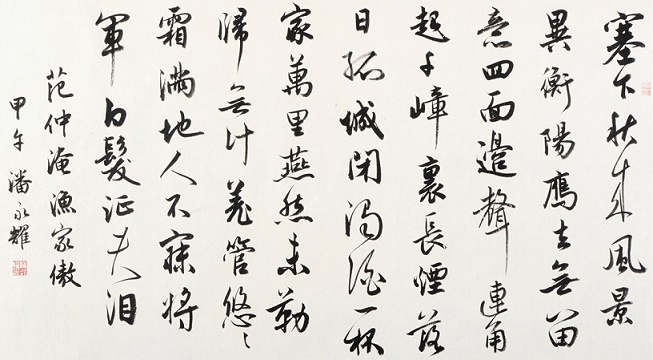 塞下秋來風景
異衡陽鴈去無留
意四面邊聲連角
起千嶂裏長煙落
日孤城閉濁酒一杯
家萬里燕然未勒
歸無計羌管悠〻
霜滿地人不寐將
軍白髮征夫泪
范仲淹漁家傲
甲午潘永耀